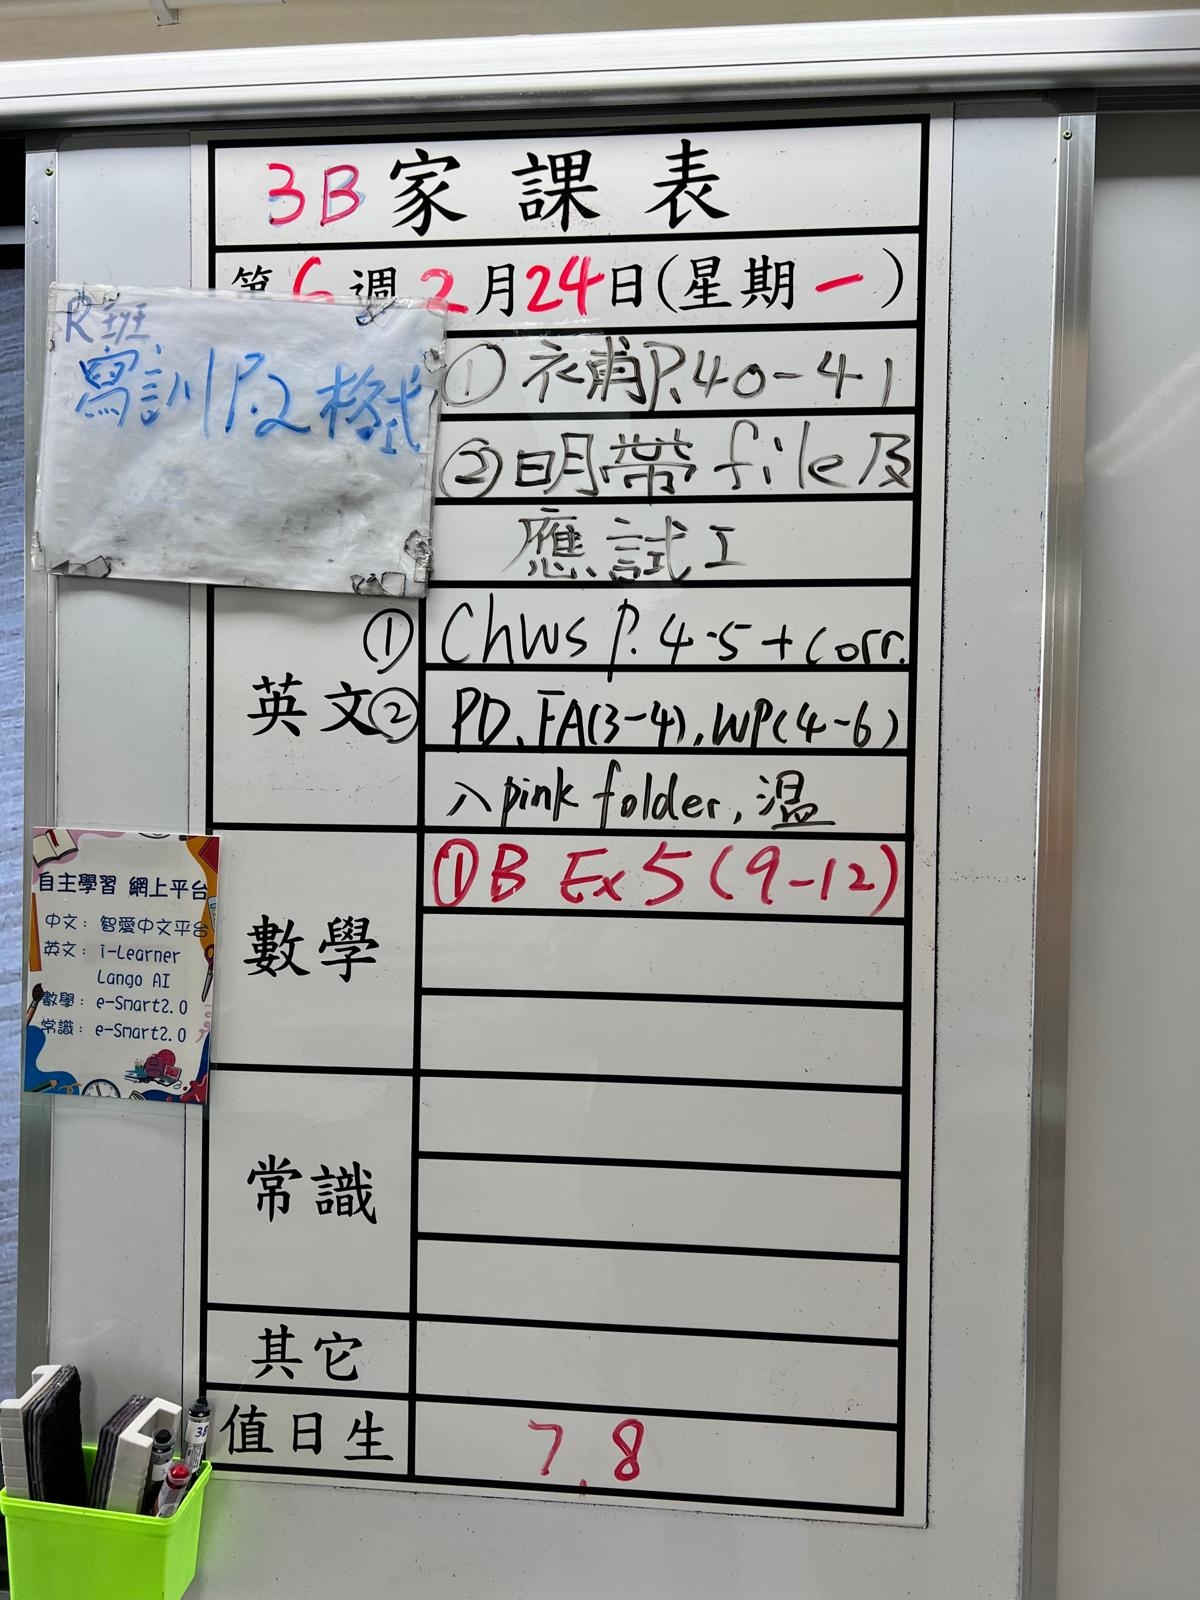 3B 家課表
第6週 2月24日(星期一)
R班
寫訓P.2格式
① 衣補P.40-41
②明帶 file及
應試工
英文
① ChWs P. 4-5 + corr.
② PD, FA(3-4), WP(4-6)
入 pink folder, 溫
數學
① B Ex 5 (9-12)
常識
其它
值日生
7, 8
自主學習 網上平台
中文: 智愛中文平台
英文: i-Learner
Lango AI
數學: e-Smart2.0
常識: e-Smart2.0
3B